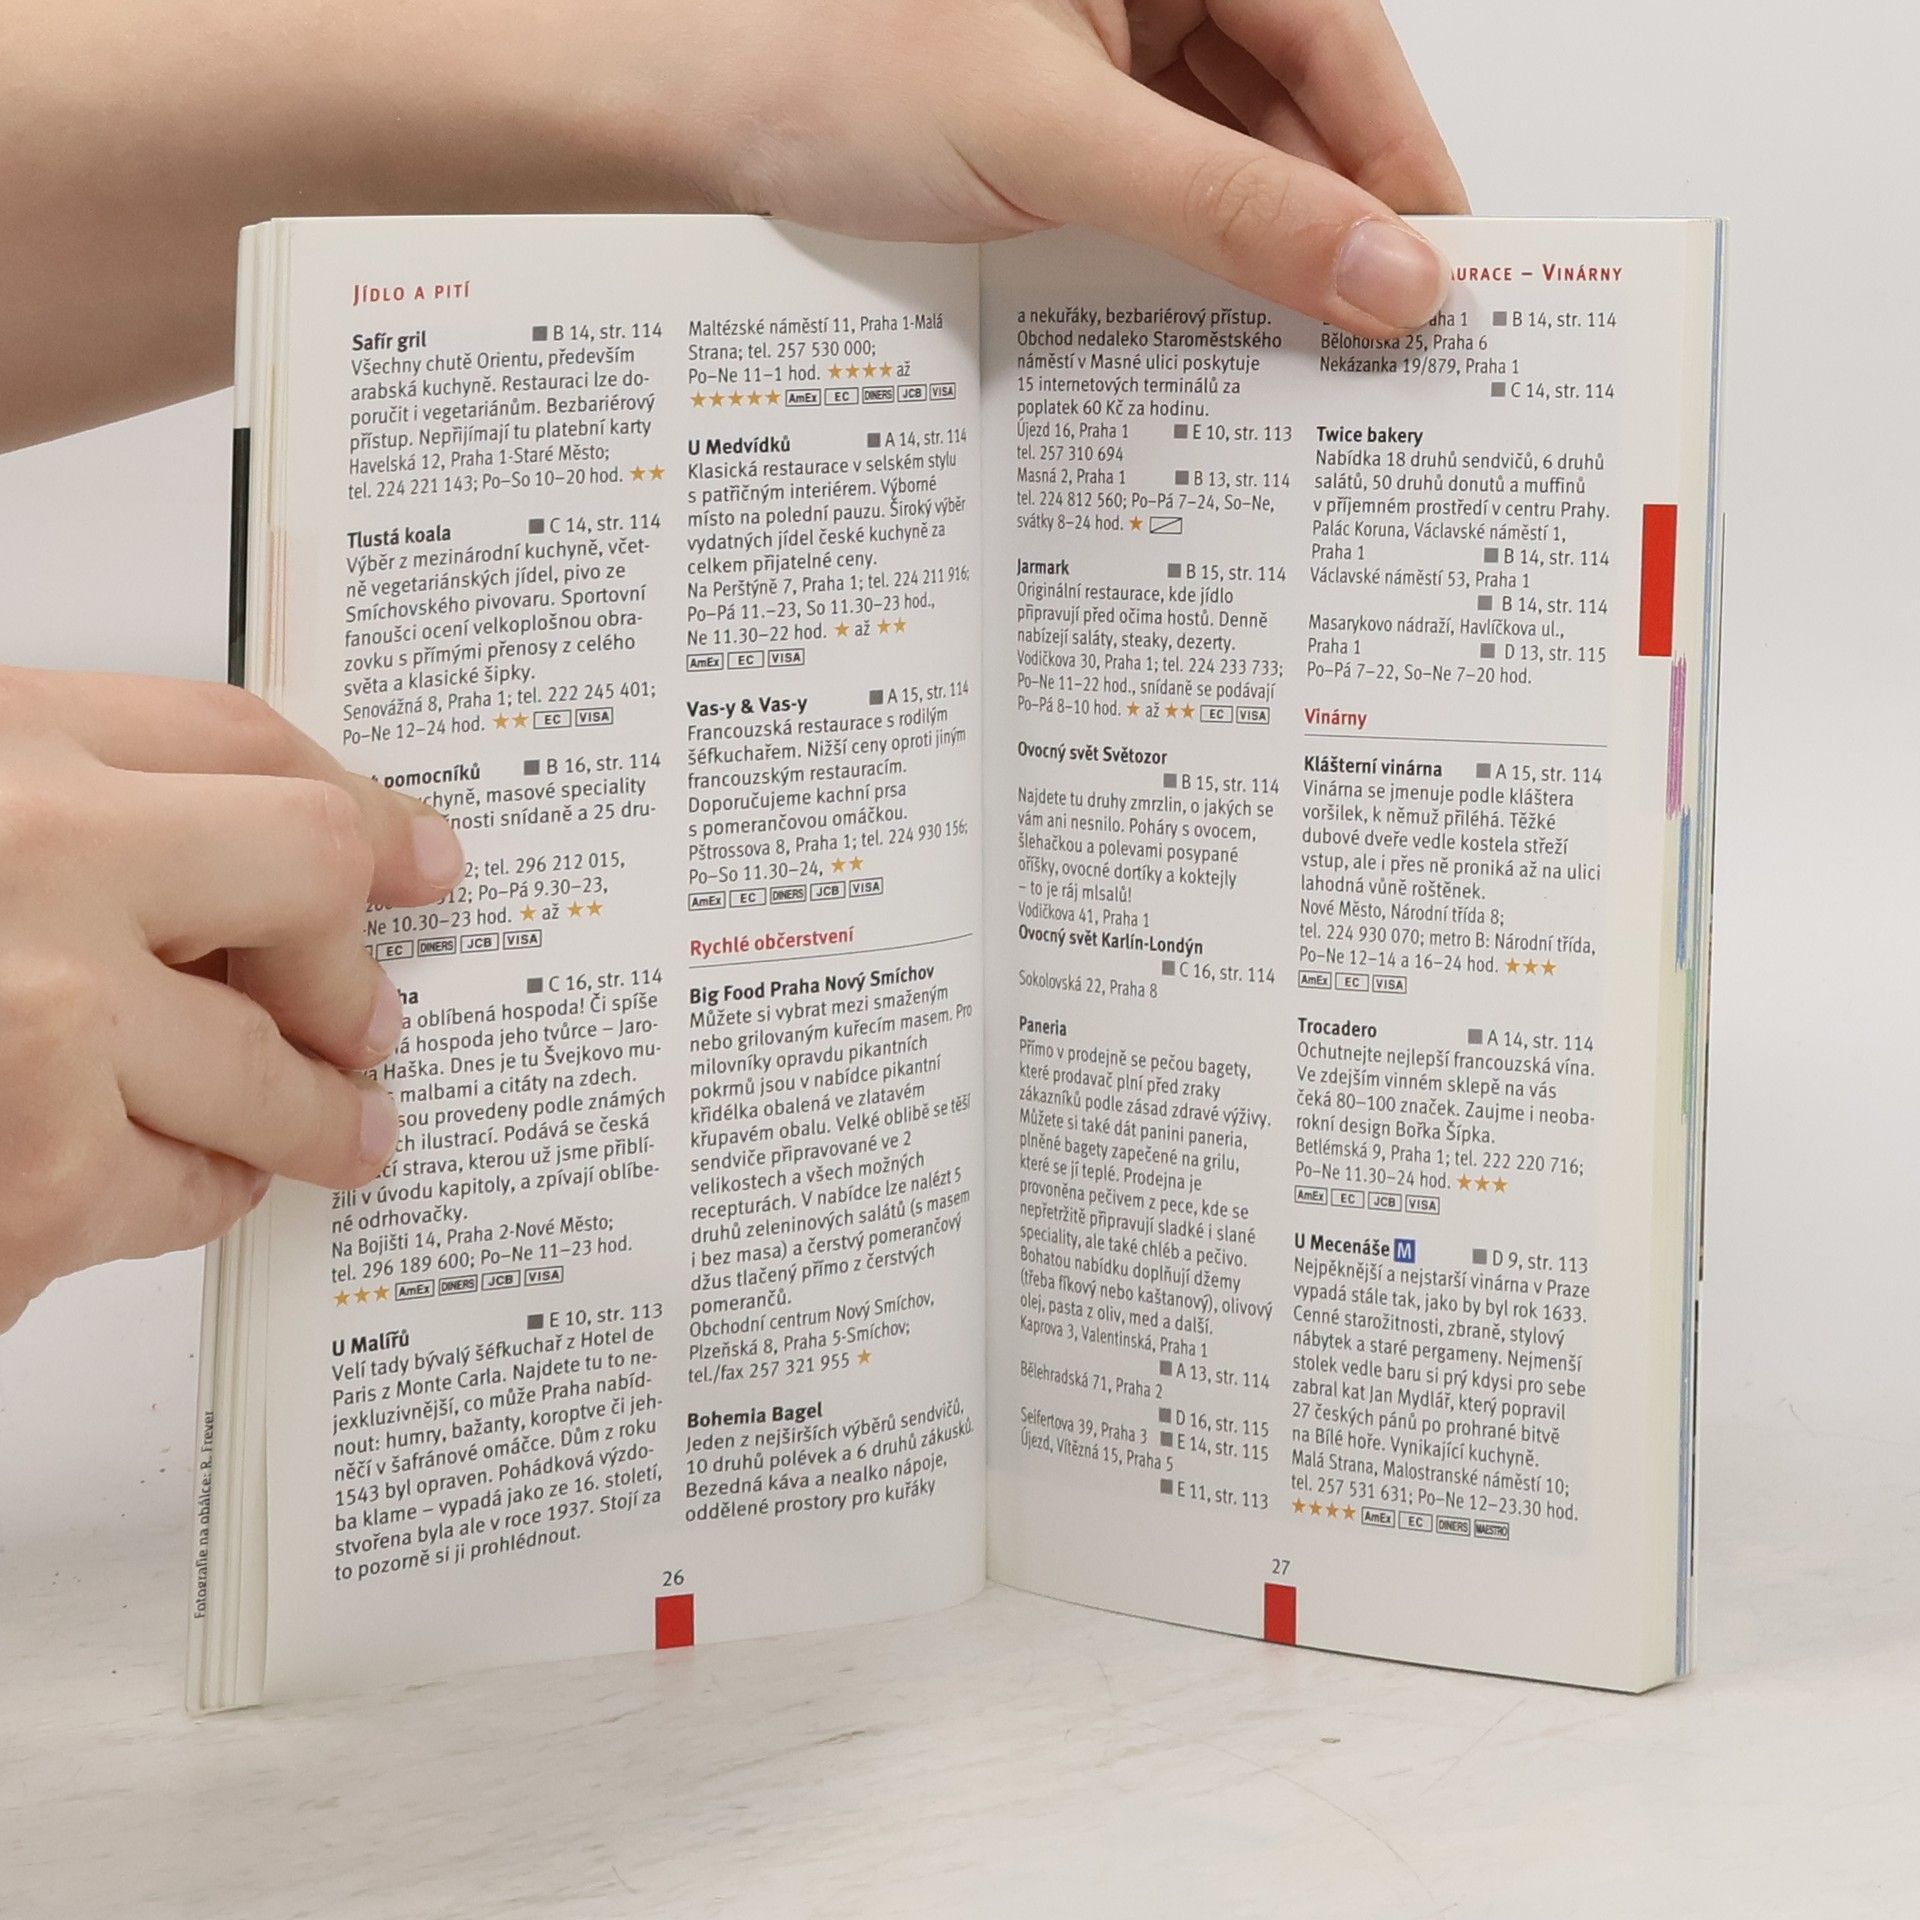 JÍDLO A PITÍ
Safír gril B 14, str. 114
Všechny chutě Orientu, především
arabská kuchyně. Restauraci lze do-
poručit i vegetariánům. Bezbariérový
přístup. Nepřijímají tu platební karty
Havelská 12, Praha 1-Staré Město;
tel. 224 221 143; Po–So 10–20 hod. ★★
Tlustá koala C 14, str. 114
Výběr z mezinárodní kuchyně, včet-
ně vegetariánských jídel, pivo ze
Smíchovského pivovaru. Sportovní
fanoušci ocení velkoplošnou obra-
zovku s přímými přenosy z celého
světa a klasické šipky.
Senovážná 8, Praha 1; tel. 222 245 401;
Po–Ne 12–24 hod. ★★ EC VISA
pomocníků B 16, str. 114
masové speciality
snídaně a 25 dru-
tel. 296 212 015,
Po–Pá 9.30–23,
-Ne 10.30–23 hod. ★ až ★★
EC DINERS JCB VISA
C 16, str. 114
oblíbená hospoda! Či spíše
hospoda jeho tvůrce – Jaro-
Haška. Dnes je tu Švejkovo mu-
malbami a citáty na zdech.
provedeny podle známých
ilustrací. Podává se česká
strava, kterou už jsme přiblí-
žili v úvodu kapitoly, a zpívají oblíbe-
né odrhovačky.
Na Bojišti 14, Praha 2-Nové Město;
tel. 296 189 600; Po–Ne 11–23 hod.
★★★ AmEx DINERS JCB VISA
U Malířů E 10, str. 113
Velí tady bývalý šéfkuchař z Hotel de
Paris z Monte Carla. Najdete tu to ne-
jexkluzivnější, co může Praha nabíd-
nout: humry, bažanty, koroptve či jeh-
něčí v šafránové omáčce. Dům z roku
1543 byl opraven. Pohádková výzdo-
ba klame – vypadá jako ze 16. století,
stvořena byla ale v roce 1937. Stojí za
to pozorně si ji prohlédnout.
Maltézské náměstí 11, Praha 1-Malá
Strana; tel. 257 530 000;
Po–Ne 11–1 hod. ★★★★ až
★★★★★ AmEx EC DINERS JCB VISA
U Medvídků A 14, str. 114
Klasická restaurace v selském stylu
s patřičným interiérem. Výborné
místo na polední pauzu. Široký výběr
vydatných jídel české kuchyně za
celkem přijatelné ceny.
Na Perštýně 7, Praha 1; tel. 224 211 916;
Po–Pá 11.–23, So 11.30–23 hod.,
Ne 11.30–22 hod. ★ až ★★
AmEx EC VISA
Vas-y & Vas-y A 15, str. 114
Francouzská restaurace s rodilým
šéfkuchařem. Nižší ceny oproti jiným
francouzským restauracím.
Doporučujeme kachní prsa
s pomerančovou omáčkou.
Pštrossova 8, Praha 1; tel. 224 930 156;
Po–So 11.30–24, ★★
AmEx EC DINERS JCB VISA
Rychlé občerstvení
Big Food Praha Nový Smíchov
Můžete si vybrat mezi smaženým
nebo grilovaným kuřecím masem. Pro
milovníky opravdu pikantních
pokrmů jsou v nabídce pikantní
křidélka obalená ve zlatavém
křupavém obalu. Velké oblibě se těší
sendviče připravované ve 2
velikostech a všech možných
recepturách. V nabídce lze nalézt 5
druhů zeleninových salátů (s masem
i bez masa) a čerstvý pomerančový
džus tlačený přímo z čerstvých
pomerančů.
Obchodní centrum Nový Smíchov,
Plzeňská 8, Praha 5-Smíchov;
tel./fax 257 321 955 ★
Bohemia Bagel
Jeden z nejširších výběrů sendvičů,
10 druhů polévek a 6 druhů zákusků.
Bezedná káva a nealko nápoje,
oddělené prostory pro kuřáky
26
Fotografie na obálce: R. Freyer
URACE – VINÁRNY
a nekuřáky, bezbariérový přístup.
Obchod nedaleko Staroměstského
náměstí v Masné ulici poskytuje
15 internetových terminálů za
poplatek 60 Kč za hodinu.
Újezd 16, Praha 1 E 10, str. 113
tel. 257 310 694
Masná 2, Praha 1 B 13, str. 114
tel. 224 812 560; Po–Pá 7–24, So–Ne,
svátky 8–24 hod. ★
Jarmark B 15, str. 114
Originální restaurace, kde jídlo
připravují před očima hostů. Denně
nabízejí saláty, steaky, dezerty.
Vodičkova 30, Praha 1; tel. 224 233 733;
Po–Ne 11–22 hod., snídaně se podávají
Po–Pá 8–10 hod. ★ až ★★ EC VISA
Ovocný svět Světozor
B 15, str. 114
Najdete tu druhy zmrzlin, o jakých se
vám ani nesnilo. Poháry s ovocem,
šlehačkou a polevami posypané
oříšky, ovocné dortíky a koktejly
– to je ráj mlsalů!
Vodičkova 41, Praha 1
Ovocný svět Karlín-Londýn
C 16, str. 114
Sokolovská 22, Praha 8
Paneria
Přímo v prodejně se pečou bagety,
které prodavač plní před zraky
zákazníků podle zásad zdravé výživy.
Můžete si také dát panini paneria,
plněné bagety zapečené na grilu,
které se jí teplé. Prodejna je
provoněna pečivem z pece, kde se
nepřetržitě připravují sladké i slané
speciality, ale také chléb a pečivo.
Bohatou nabídku doplňují džemy
(třeba fíkový nebo kaštanový), olivový
olej, pasta z oliv, med a další.
Kaprova 3, Valentinská, Praha 1
A 13, str. 114
Bělehradská 71, Praha 2
D 16, str. 115
Seifertova 39, Praha 3 E 14, str. 115
Újezd, Vítězná 15, Praha 5
E 11, str. 113
aha 1 B 14, str. 114
Bělohorská 25, Praha 6
Nekázanka 19/879, Praha 1
C 14, str. 114
Twice bakery
Nabídka 18 druhů sendvičů, 6 druhů
salátů, 50 druhů donutů a muffinů
v příjemném prostředí v centru Prahy.
Palác Koruna, Václavské náměstí 1,
Praha 1 B 14, str. 114
Václavské náměstí 53, Praha 1
B 14, str. 114
Masarykovo nádraží, Havlíčkova ul.,
Praha 1 D 13, str. 115
Po–Pá 7–22, So–Ne 7–20 hod.
Vinárny
Klášterní vinárna A 15, str. 114
Vinárna se jmenuje podle kláštera
voršilek, k němuž přiléhá. Těžké
dubové dveře vedle kostela střeží
vstup, ale i přes ně proniká až na ulici
lahodná vůně roštěnek.
Nové Město, Národní třída 8;
tel. 224 930 070; metro B: Národní třída,
Po–Ne 12–14 a 16–24 hod. ★★★
AmEx EC VISA
Trocadero A 14, str. 114
Ochutnejte nejlepší francouzská vína.
Ve zdejším vinném sklepě na vás
čeká 80–100 značek. Zaujme i neoba-
rokní design Bořka Šípka.
Betlémská 9, Praha 1; tel. 222 220 716;
Po–Ne 11.30–24 hod. ★★★
AmEx EC JCB VISA
U Mecenáše M D 9, str. 113
Nejpěknější a nejstarší vinárna v Praze
vypadá stále tak, jako by byl rok 1633.
Cenné starožitnosti, zbraně, stylový
nábytek a staré pergameny. Nejmenší
stolek vedle baru si prý kdysi pro sebe
zabral kat Jan Mydlář, který popravil
27 českých pánů po prohrané bitvě
na Bílé hoře. Vynikající kuchyně.
Malá Strana, Malostranské náměstí 10;
tel. 257 531 631; Po–Ne 12–23.30 hod.
★★★★ AmEx EC DINERS MAESTRO
27